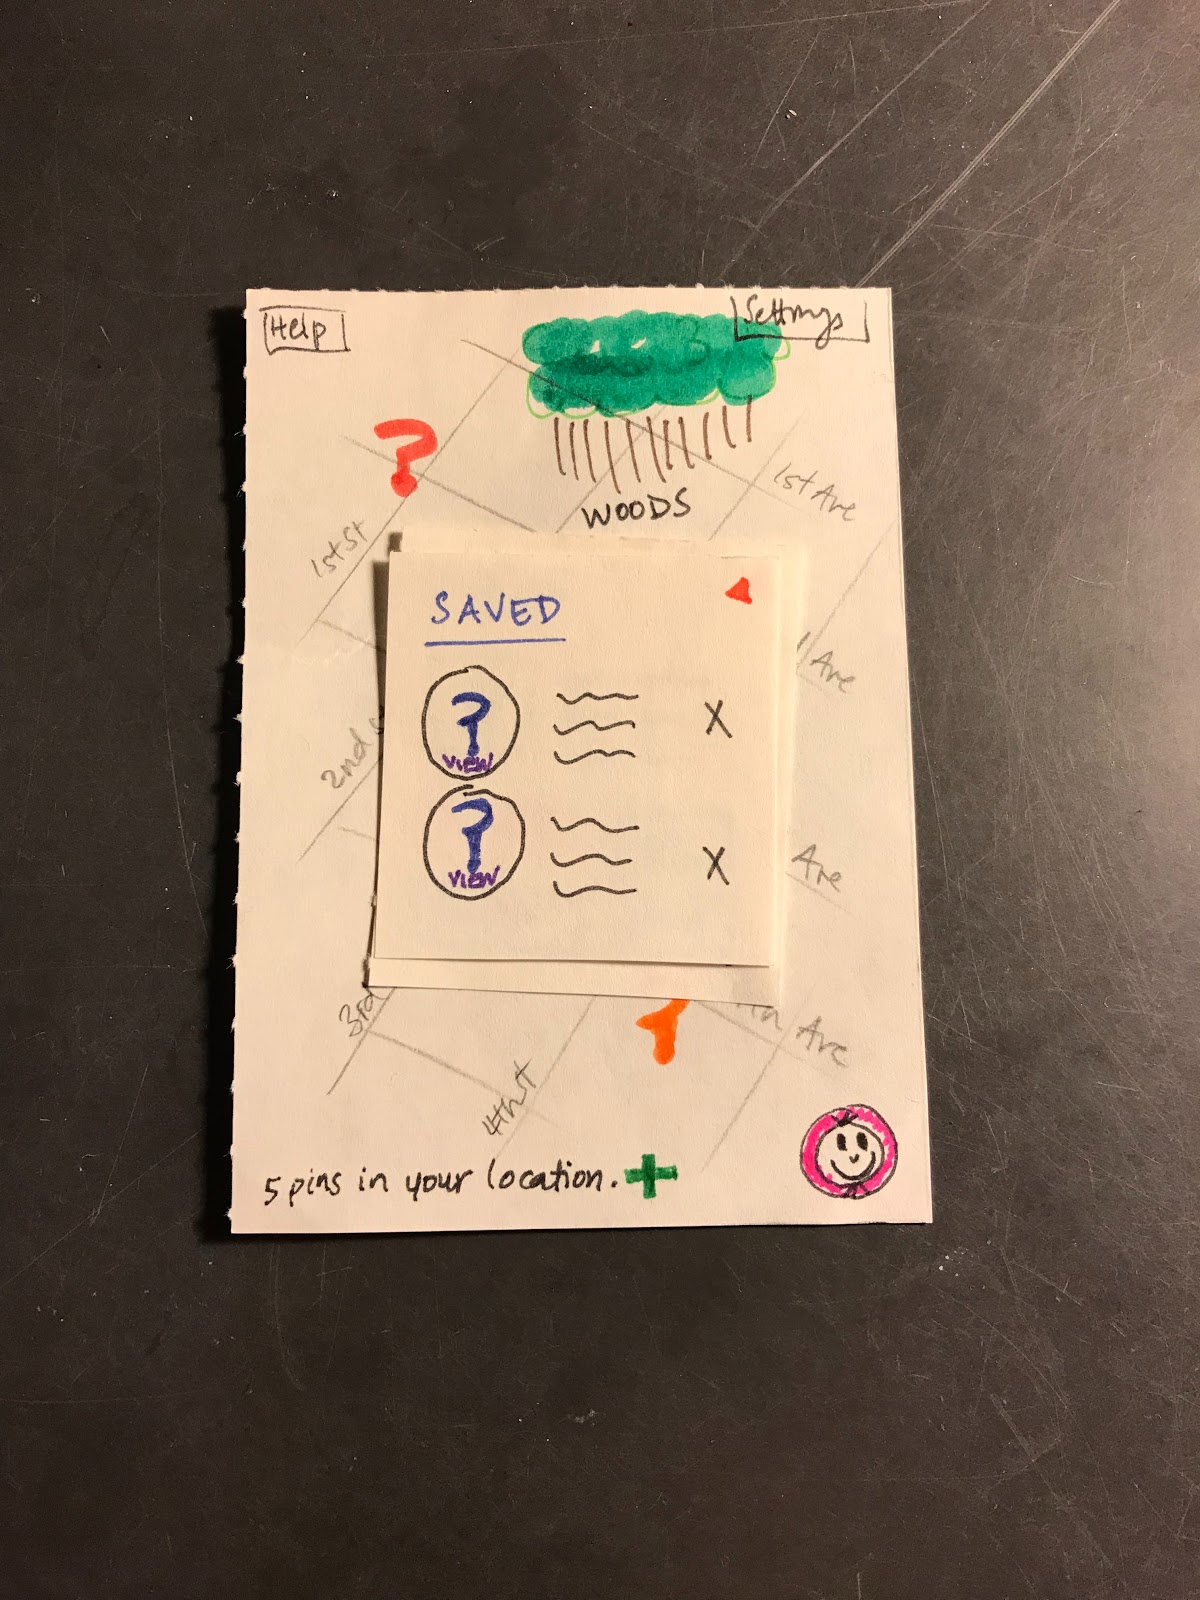 Help
Settings
?
WOODS
1st Ave
1st St
SAVED
Ave
?
VIEW
X
2nd
?
VIEW
X
Ave
3rd
Ave
4th st
5 pins in your location. +